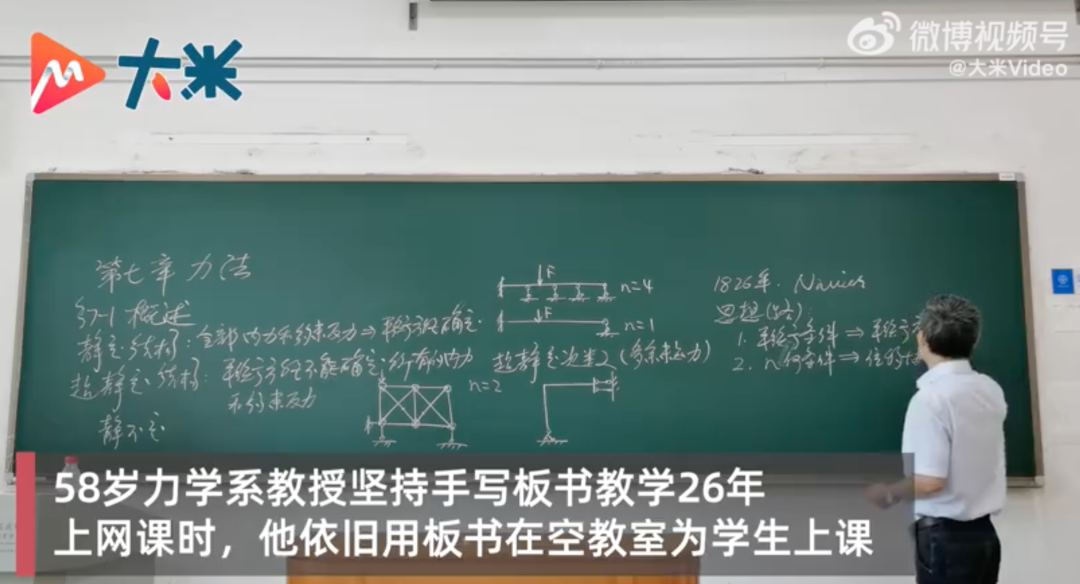 大米
微博视频号
@大米Video
第七章 力法
§7-1 概述
静定结构：全部内力和约束反力⇒平衡方程确定
超静定结构：平衡方程不能确定所有的内力
和约束反力
静不定
F
n=4
F
n=1
超静定次数
n=2
1826年. Navier
思想
1. 平衡条件 ⇒
2. 几何条件 ⇒
58岁力学系教授坚持手写板书教学26年
上网课时，他依旧用板书在空教室为学生上课